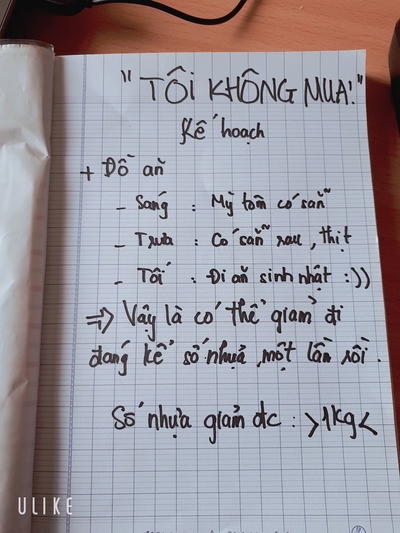 "TÔI KHÔNG MUA!"
Kế hoạch
+ Đồ ăn
- Sáng : Mỳ tôm có sẵn
- Trưa : Có sẵn rau, thịt
- Tối : Đi ăn sinh nhật :))
=> Vậy là có thể giảm đi
đáng kể số nhựa một lần rồi.
Số nhựa giảm đc : >1kg<
ULIKE